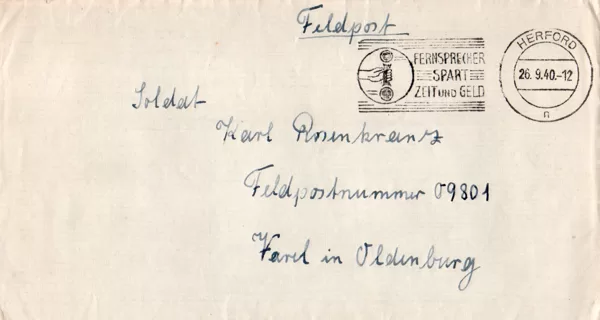 Feldpost
FERNSPRECHER
SPART
ZEIT UND GELD
HERFORD
26.9.40.-12
n
Soldat
Karl Rosenkranz
Feldpostnummer 09801
Varel in Oldenburg